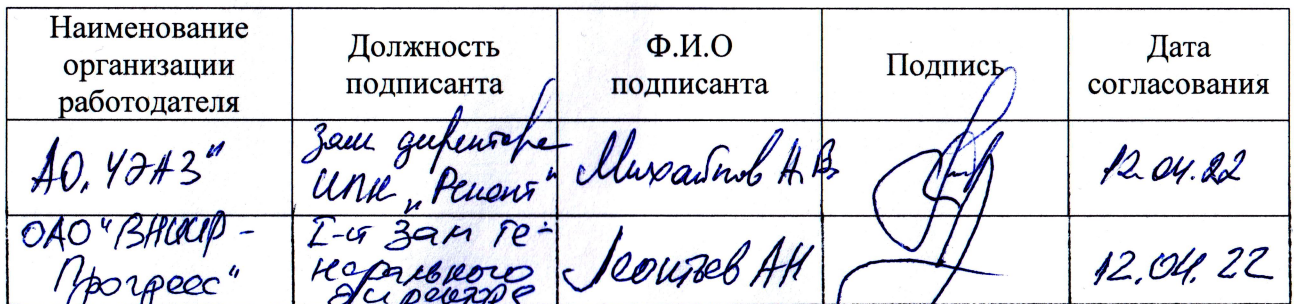 Наименование
организации
работодателя
Должность
подписанта
Ф.И.О
подписанта
Подпись
Дата
согласования
АО "ЧЭАЗ"
Зам директора
ИПК „Релонт"
Михайлов А.В.
12.04.22
ОАО "ВНИИР -
Прогресс"
I-й зам ге-
нерального
директора
Леонтьев АН
12.04.22